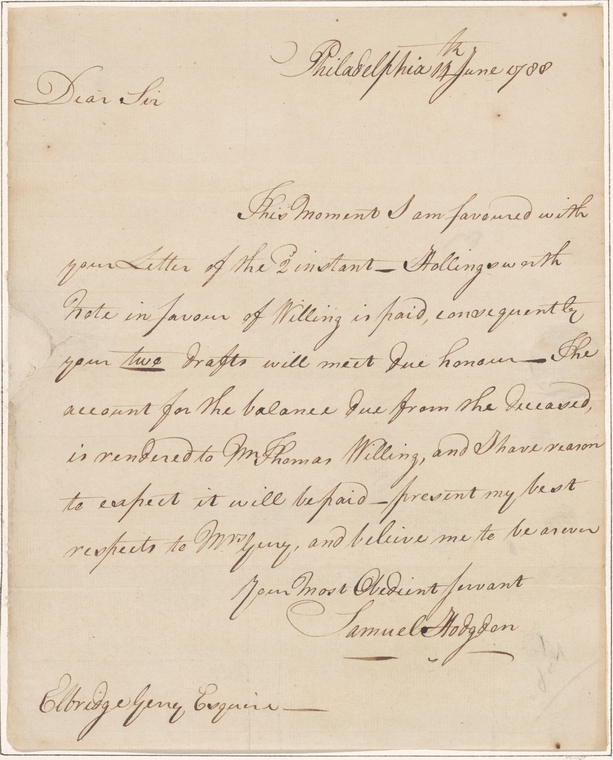 Philadelphia 14th June 1788
Dear Sir
This Moment I am favoured with
your Letter of the 2d instant — Hollingsworth
Note in favour of Willing is paid, consequently
your two drafts will meet due honour — The
account for the balance due from the deceased,
is rendered to Mr Thomas Willing, and I have reason
to expect it will be paid — present my best
respects to Mrs Gerry, and beleive me to be as ever
your Most Obedient servant
Samuel Hodgdon
Elbridge Gerry Esquire —